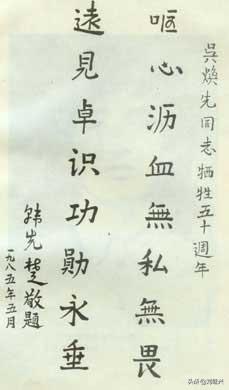 吳煥先同志牺牲五十週年
呕心沥血無私無畏
遠見卓识功勛永垂
韩先楚敬題
一九八五年五月
头条@刘继兴